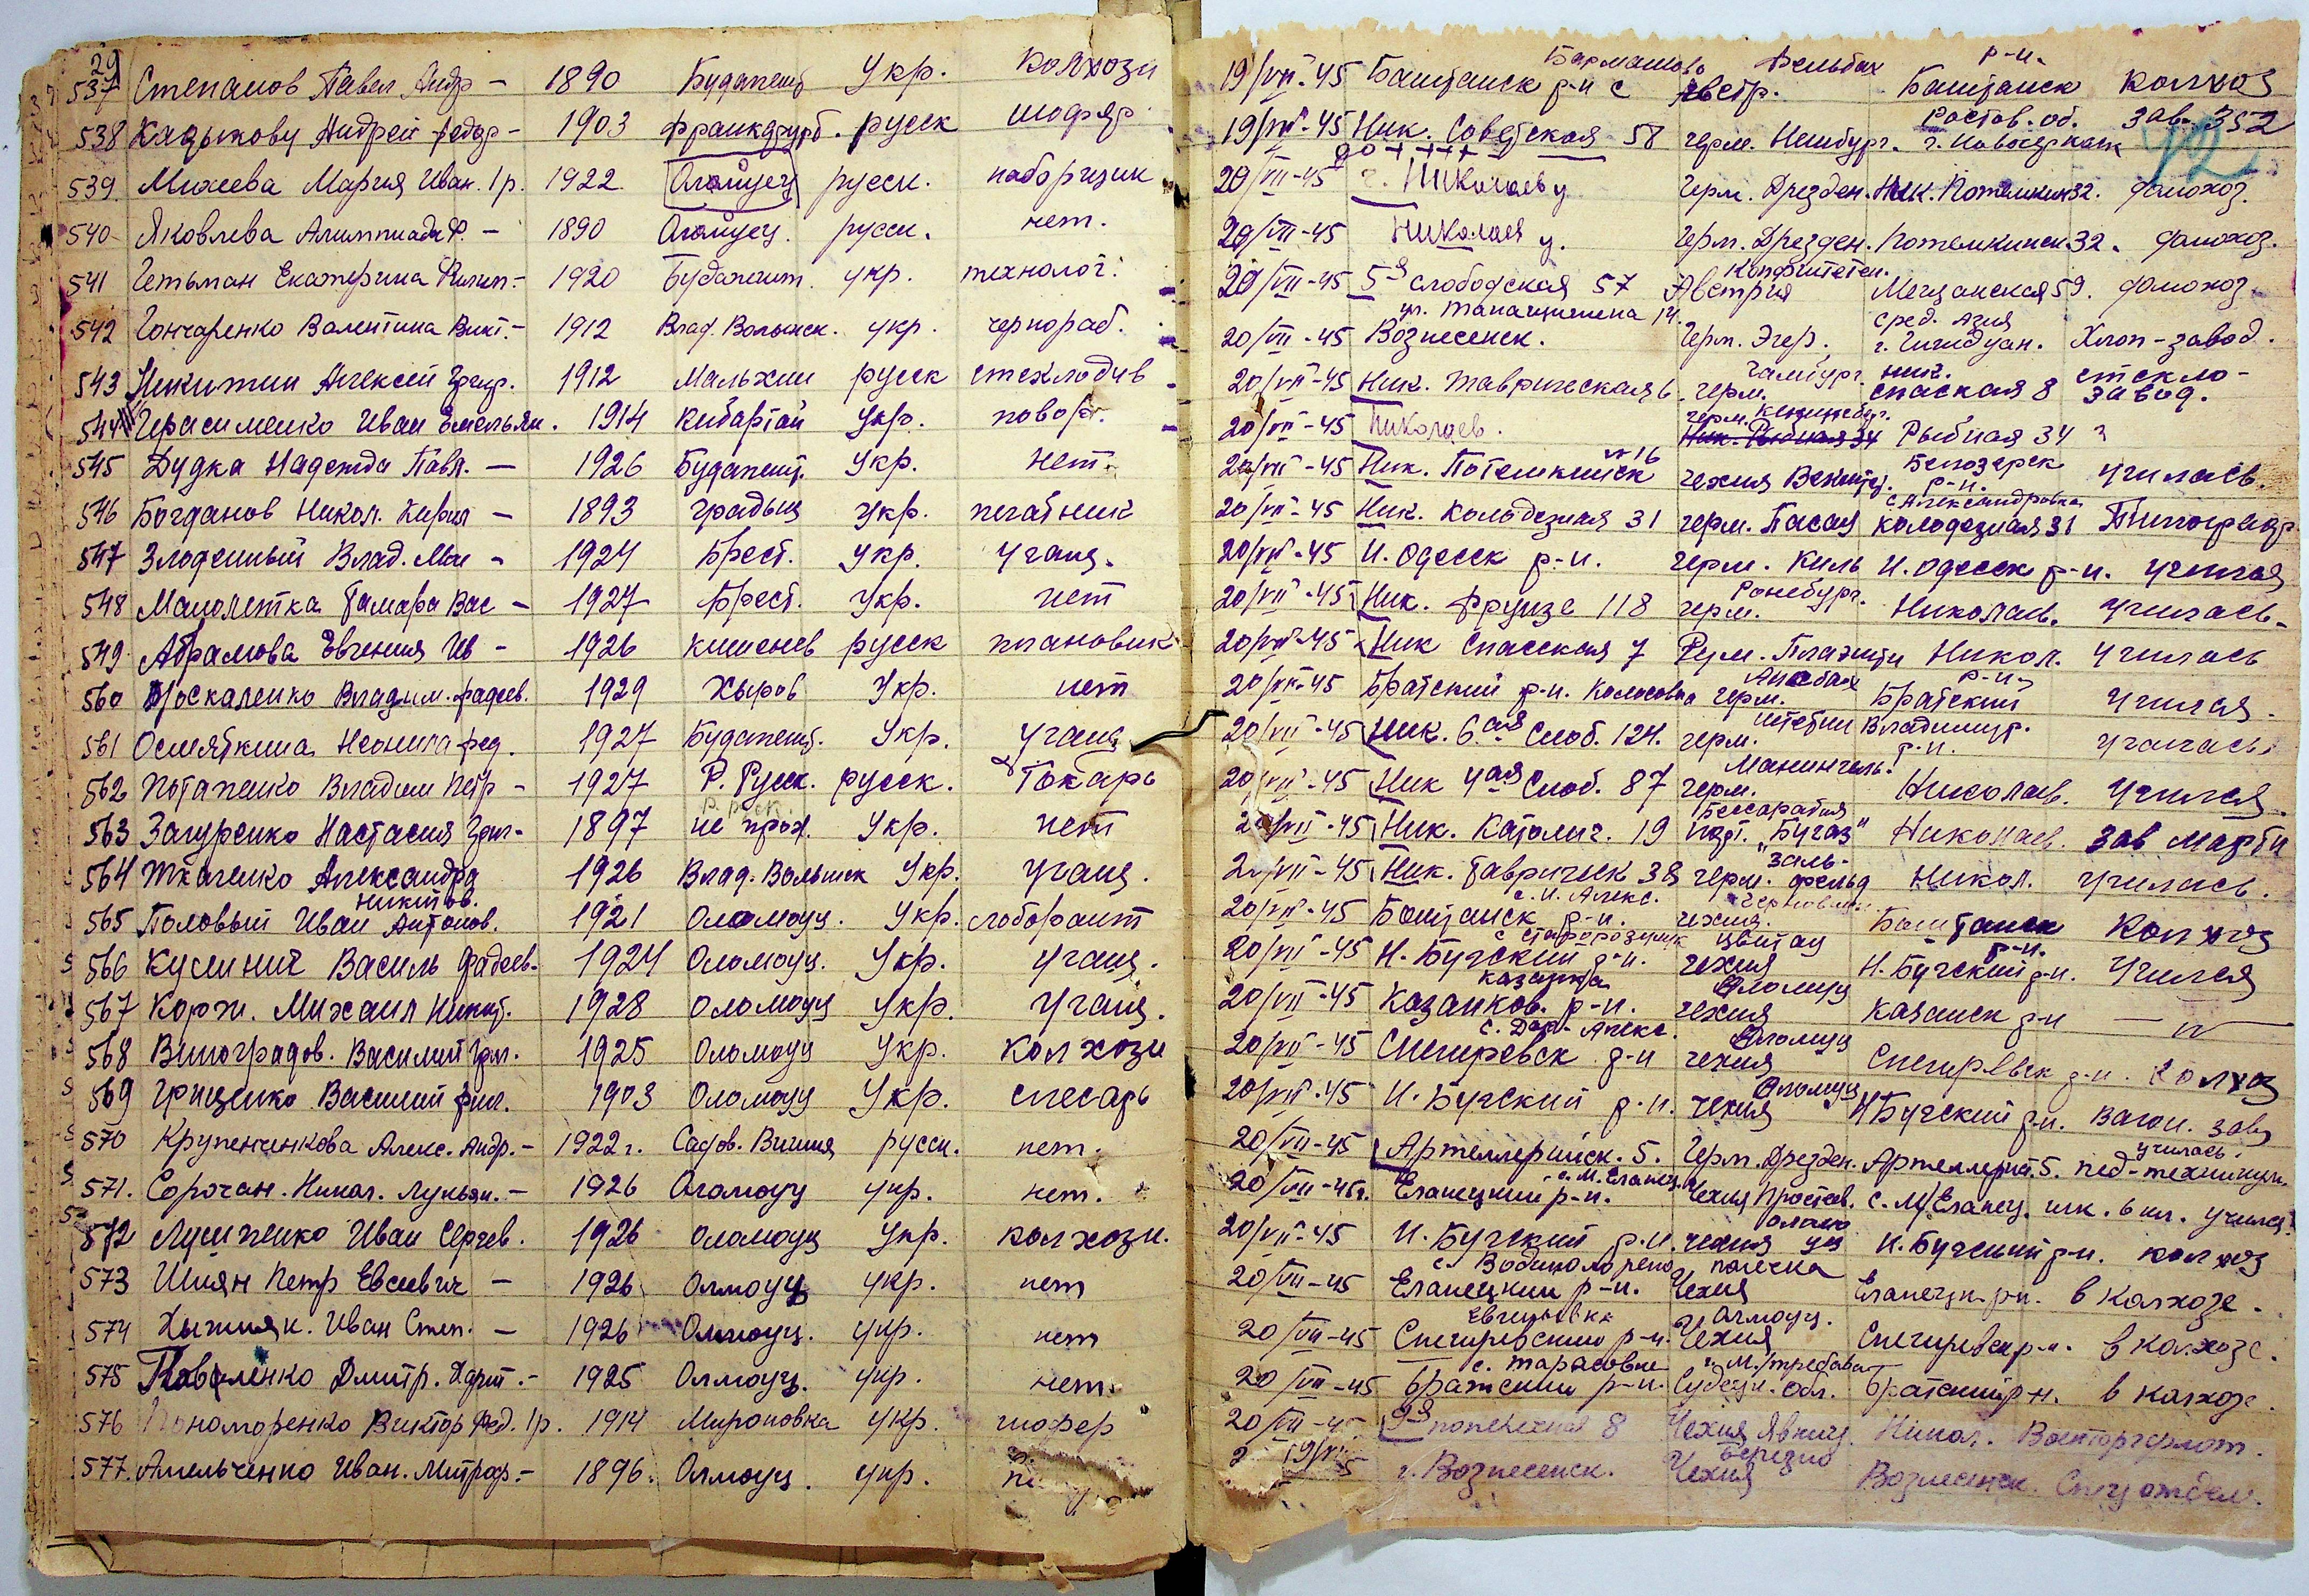 29
537 Степанов Павел Андр – 1890 Будапешт Укр. колхозн 19/VII-45 Баштанск р-н с Бармашово Австр. Фельбах Баштанск р-н. колхоз
538 Андрей Федор – 1903 Франкфурт. русск шофер 19/VII-45 Ник. Советская 58 герм. Ростов. об. г. Новочеркаск зав. 352
12
539 Михеева Мария Иван. 1р. 1922 русск. наборщик 20/VII-45 г. Николаев у. Герм. Дрезден. Ник. Потемкин 32. домохоз.
540 Яковлева Алимпиада Ф. – 1890 русск. нет. 20/VII-45 Николаев у. Герм. Дрезден. Потемкинск 32. домохоз.
541 Гетьман Екатерина Филип. – 1920 Будапешт. укр. технолог. 20/VII-45 5я слободская 57 Австрия Мещанская 59. домохоз.
542 Гончаренко Валентина Викт. – 1912 Влад. Волынск. укр. чернораб. 20/VII-45 Вознесенск. 14. Герм. Эгер. Сред. Азия г. Хлоп-завод.
543 Никитин Алексей Григ. 1912 Мальхин русск стеклодув 20/VII-45 Ник. Таврическая 6. герм. Гамбург. ник. спаская 8 стекло-завод.
544 Герасименко Иван Емельян. 1914 Кибартай Укр. повор. 20/VII-45 Николаев. герм. Рыбная 34 ?
545 Дудка Надежда Павл. – 1926 Будапешт. Укр. нет. 20/VII-45 Ник. Потемкинск 16 Чехия Белозерск р-н. с Александровка училась.
546 Богданов Никол. Кирил – 1893 Градьщ Укр. печатник 20/VII-45 Ник. Колодезная 31 герм. Пасау колодезная 31 Типограф
547 Злоденный Влад. – 1924 Брест. Укр. учащ. 20/VII-45 Н. Одесск р-н. герм. Киль Н. Одесск р-н. учился
548 Малолетка Тамара Вас – 1927 Брест. Укр. нет 20/VII-45 Ник. Фрунзе 118 герм. Ранебург. Николаев. училась.
549 Абрамова Евгения Ив – 1926 Кишенев русск плановик 20/VII-45 Ник Спасская 7 Рум. Никол. училась
560 Москаленко Владим. Фадеев. 1929 Хыров Укр. нет 20/VII-45 Братский р-н. Колосовка герм. Ансбах Братский р-н. учился.
561 Осмяткина Неонила фед. 1927 Будапешт. Укр. учащ 20/VII-45 Ник. 6.ая Слоб. 124. герм. штетин Владимир. р-н. училась
562 Потапенко Владим Петр – 1927 Р. Русск. русск. Токарь 20/VII-45 Ник 4ая Слоб. 87 герм. Николаев. учился.
563 Загуренко Настасия Григ. 1897 не прох. Укр. нет 20/VII-45 Ник. Католич. 19 Бессарабия порт. "Бугаз" Николаев. зав Марти
564 Ткаченко Александра никитов. 1926 Влад. Волынск Укр. учащ. 20/VII-45 Ник. Тавричнск 38 герм. Заль-фельд Никол. училась.
565 Половый Иван Антонов. 1921 Оломоуц. Укр. лоборант 20/VII-45 Боштанск р-н. с. Н. Алекс. чехия. Баштанск р-н. Колхоз
566 Кушнич Василь Фадеев. 1924 Оломоуц. Укр. учащ. 20/VII-45 Н. Бугский р-н. чехия цвитау Н. Бугский р-н. учился
567 Корж. Михаил Никит. 1928 Оломоуц Укр. Учащ. 20/VII-45 Казанков. р-н. казанка чехия Оломоуц Казанск р-н –"–
568 Виноградов. Василий Григ. 1925 Оломоуц Укр. колхозн 20/VII-45 Снегиревск р-н с. Дар-Алекс. чехия Оломоуц Снегиревск р-н. колхоз
569 Гриценко Василий фил. 1903 Оломоуц Укр. слесарь 20/VII-45 Н. Бугский р-н. чехия Оломоуц Н Бугский р-н. вагон. зав
570 Крупенченкова Алекс. Андр. – 1922 г. Садов. Вишня русск. нет. 20/VII-45 Артеллерийск. 5. Герм. Дрезден. Артеллерий. 5. училась. пед-техникум.
571. Сорочан. Никол. Лукьян. – 1926 Оломоуц укр. нет. 20/VII-45г. Еланецкий р-н. с. М. Еланец. Чехия Простев. с. М/Еланец. шк. 6 кл. учился
572 Лушпенко Иван Сергев. 1926 Оломоуц Укр. колхозн. 20/VII-45 Н. Бугский р-н. чехия оломо уц Н. Бугский р-н. колхоз
573 Шиян Петр Евсевич – 1926 Олмоуц укр. нет 20/VII-45 Еланецкий р-н. Чехия Еланецк. р-н. в колхозе.
574 Хыжняк. Иван Степ. – 1926 Олмоуц. укр. нет 20/VII-45 Снегиревский р-н. Евгеньевка Чехия г. Олмоуц. Снегиревск р-н. в колхозе.
575 Коваленко Дмитр. Харит. – 1925 Олмоуц. укр. нет. 20/VII-45 Братский р-н. с. Тарасовке Судецк. обл. Братский р-н. в колхозе.
576 Пономоренко Виктор Фед. 1р. 1914 Мироновка укр. шофер 20/VII-45 8 Чехия Никол. Воентортфлот.
577. Амельченко Иван. Митроф. – 1896. Олмоуц. укр. г. Вознесенск. Чехия Вознесенск. Спецотдел.